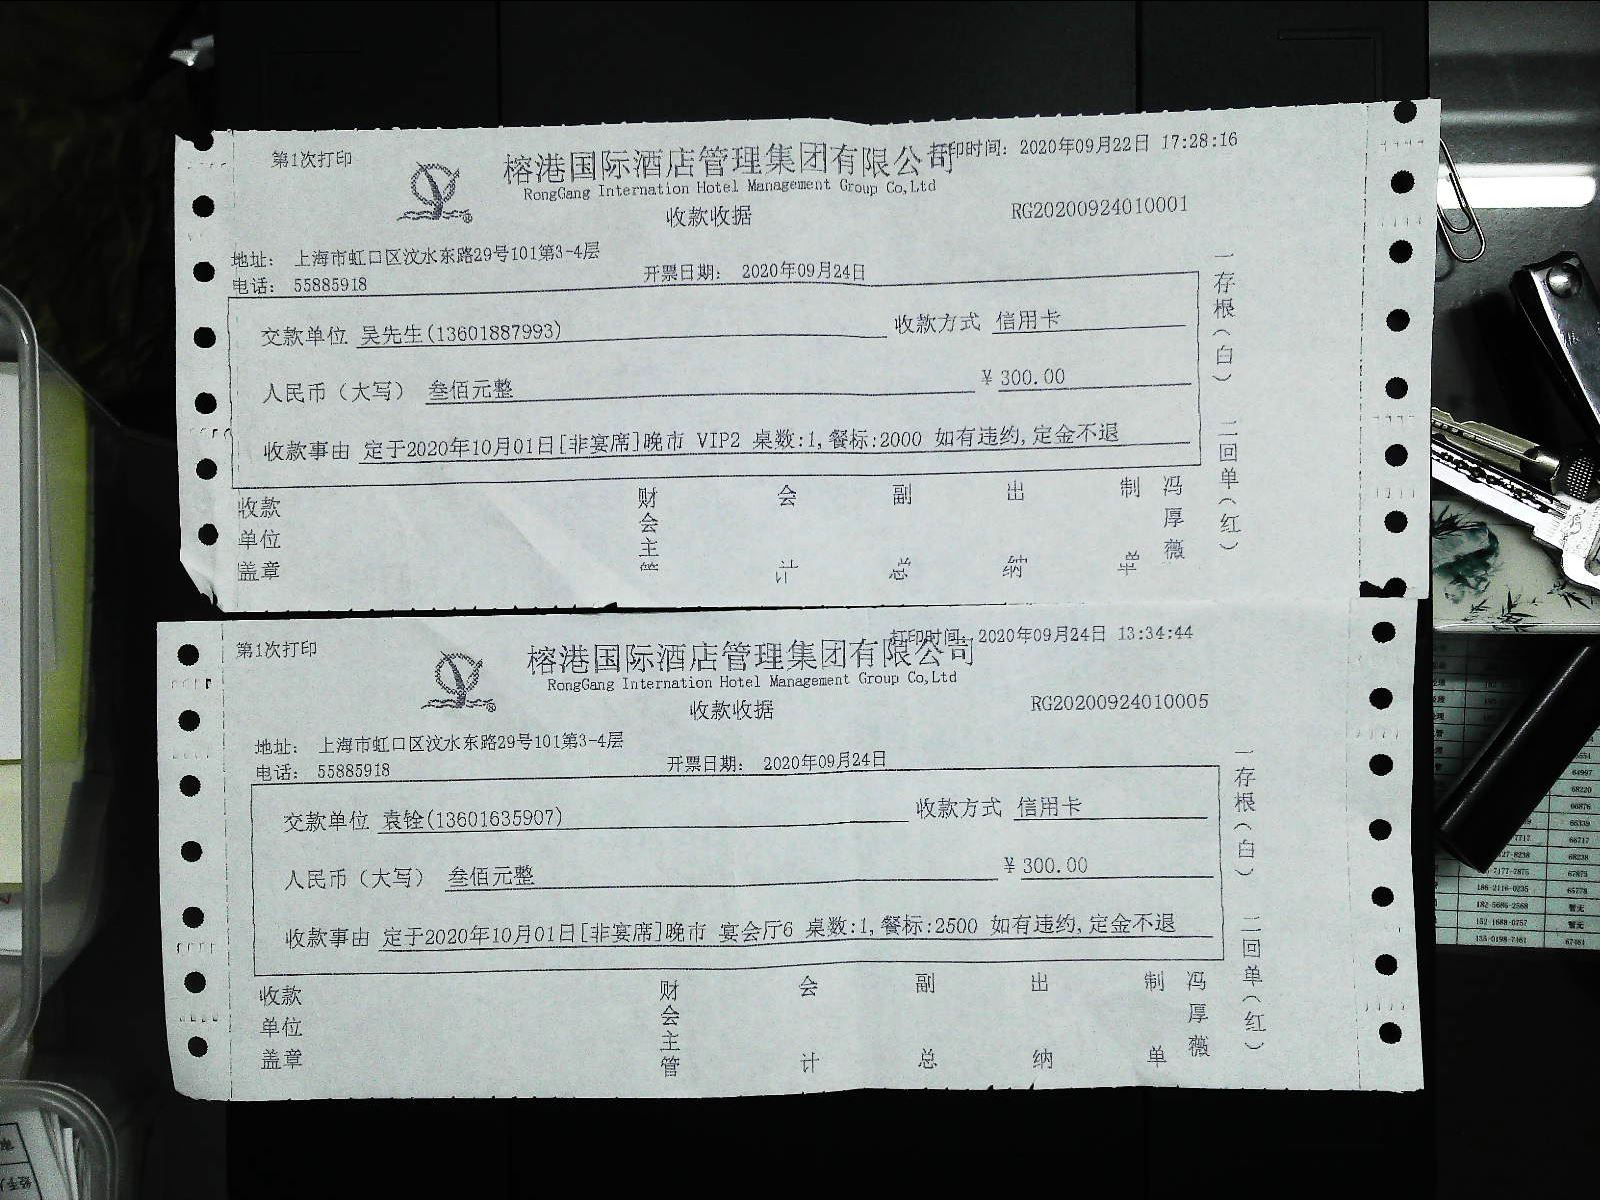 第1次打印
榕港国际酒店管理集团有限公司
印时间: 2020年09月22日 17:28:16
RongGang Internation Hotel Management Group Co,Ltd
收款收据
RG20200924010001
地址: 上海市虹口区汶水东路29号101第3-4层
电话: 55885918
开票日期: 2020年09月24日
交款单位 吴先生(13601887993)
收款方式 信用卡
人民币（大写） 叁佰元整
¥ 300.00
收款事由 定于2020年10月01日[非宴席]晚市 VIP2 桌数:1,餐标:2000 如有违约,定金不退
收款单位盖章
财会主管
会计
副总
出纳
制单
冯厚薇
一存根(白) 二回单(红)
第1次打印
榕港国际酒店管理集团有限公司
打印时间: 2020年09月24日 13:34:44
RongGang Internation Hotel Management Group Co,Ltd
收款收据
RG20200924010005
地址: 上海市虹口区汶水东路29号101第3-4层
电话: 55885918
开票日期: 2020年09月24日
交款单位 袁铨(13601635907)
收款方式 信用卡
人民币（大写） 叁佰元整
¥ 300.00
收款事由 定于2020年10月01日[非宴席]晚市 宴会厅6 桌数:1,餐标:2500 如有违约,定金不退
收款单位盖章
财会主管
会计
副总
出纳
制单
冯厚薇
一存根(白) 二回单(红)
64997
68220
66876
66339
66717
68238
67873
186-2116-0235 65778
182-5686-2568 暂无
152-1688-0757 暂无
135-0198-7461 67461